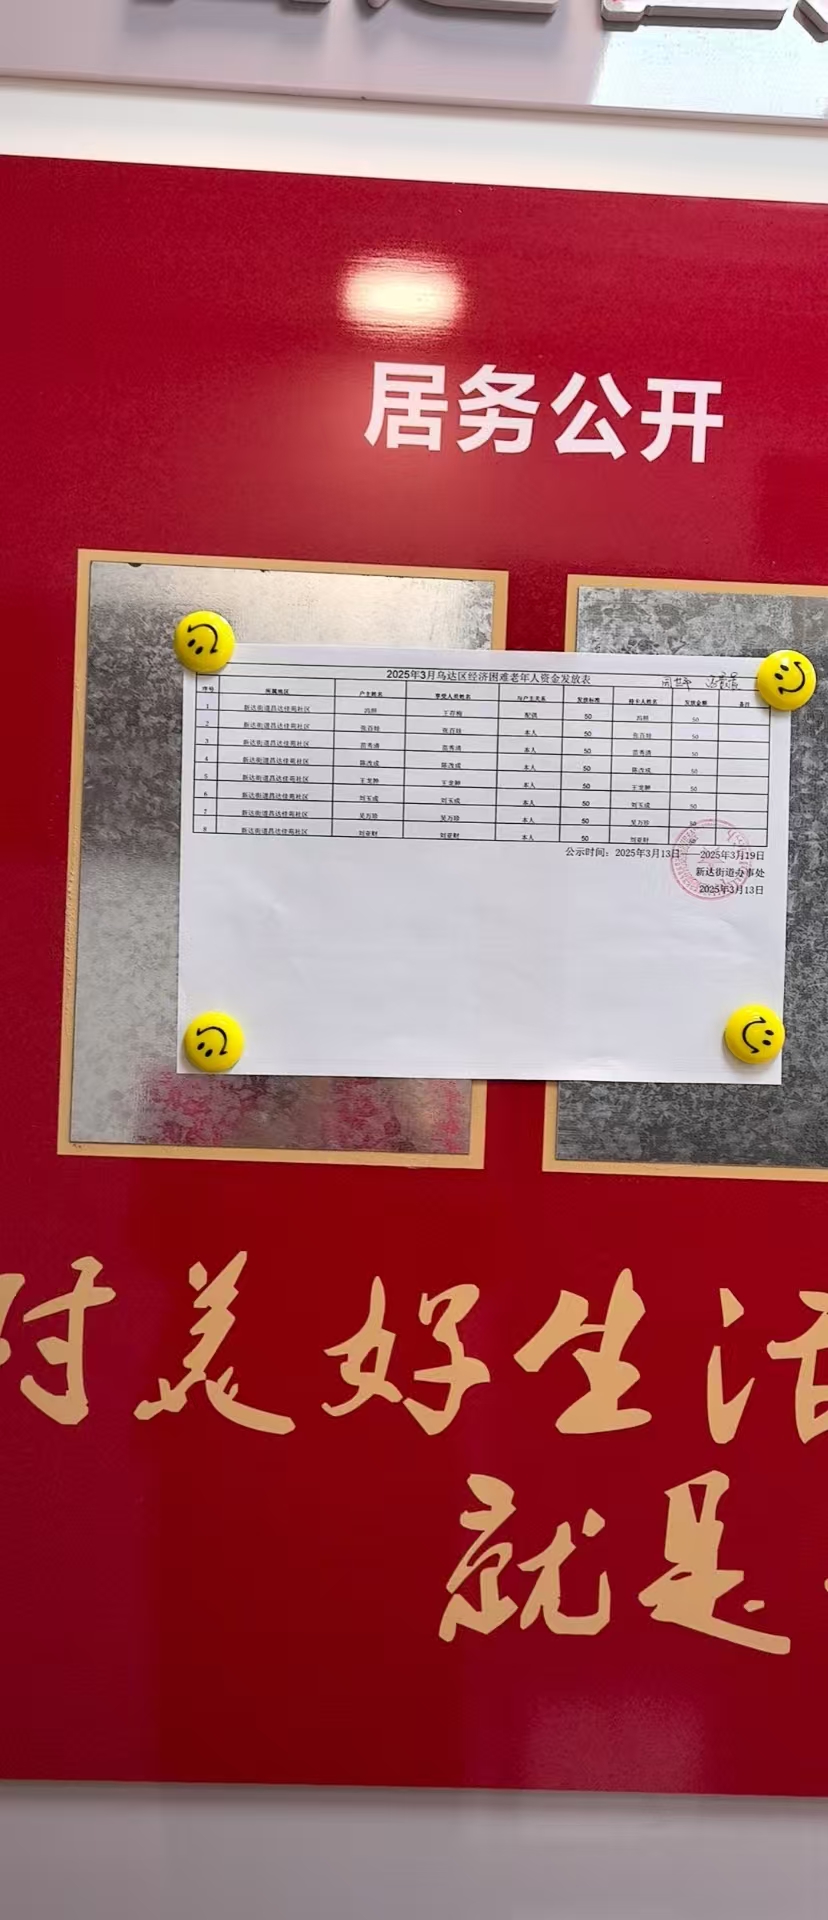 居务公开
2025年3月乌达区经济困难老年人资金发放表
序号 所属地区 户主姓名 享受人员姓名 与户主关系 发放标准 持卡人姓名 发放金额 备注
1 新达街道昌达佳苑社区 配偶 50 50
2 新达街道昌达佳苑社区 张百娃 张百娃 本人 50 张百娃 50
3 新达街道昌达佳苑社区 苗秀清 苗秀清 本人 50 苗秀清 50
4 新达街道昌达佳苑社区 陈改成 陈改成 本人 50 陈改成 50
5 新达街道昌达佳苑社区 王龙肿 王龙肿 本人 50 王龙肿 50
6 新达街道昌达佳苑社区 刘玉成 刘玉成 本人 50 刘玉成 50
7 新达街道昌达佳苑社区 吴万珍 吴万珍 本人 50 吴万珍 50
8 新达街道昌达佳苑社区 刘亚财 刘亚财 本人 50 刘亚财 50
公示时间：2025年3月13日——2025年3月19日
新达街道办事处
2025年3月13日
对美好生活
就是